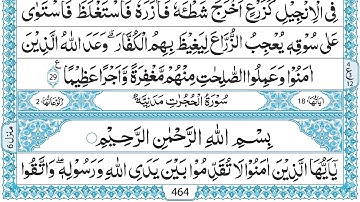 فِى الۡاِنۡجِيۡلِ كَزَرۡعٍ اَخۡرَجَ شَطۡـَٔهٗ فَاٰزَرَهٗ فَاسۡتَغۡلَظَ فَاسۡتَوٰى
عَلٰى سُوۡقِهٖ يُعۡجِبُ الزُّرَّاعَ لِيَـغِيۡظَ بِهِمُ الۡكُفَّارَ‌ ؕ وَعَدَ اللّٰهُ الَّذِيۡنَ
اٰمَنُوۡا وَعَمِلُوا الصّٰلِحٰتِ مِنۡهُمۡ مَّغۡفِرَةً وَّاَجۡرًا عَظِيۡمًا 29
اٰيَاتُهَا 18 سُوۡرَةُ الۡحُجُرٰتِ مَدَنِيَّةٌ رُكُوۡعَاتُهَا 2
بِسۡمِ اللّٰهِ الرَّحۡمٰنِ الرَّحِيۡمِ
يٰۤاَيُّهَا الَّذِيۡنَ اٰمَنُوۡا لَا تُقَدِّمُوۡا بَيۡنَ يَدَىِ اللّٰهِ وَرَسُوۡلِهٖ‌ وَاتَّقُوا
464